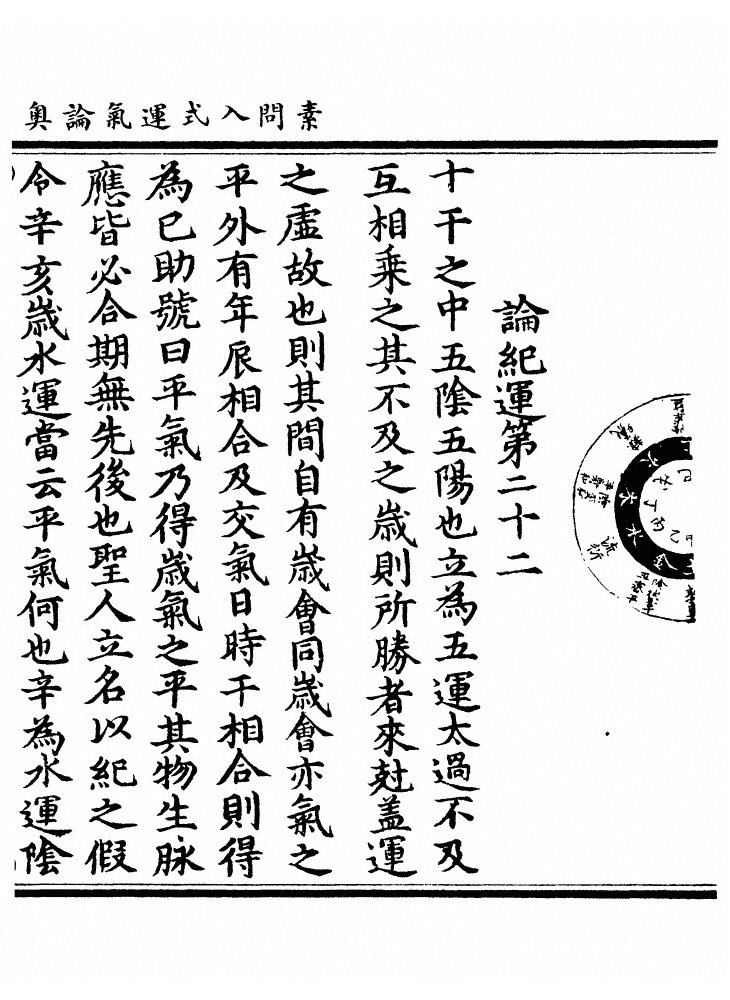 素問入式運氣論奧
論紀運第二十二
十干之中五陰五陽也立為五運太過不及
互相乗之其不及之歳則所勝者來尅盖運
之虛故也則其間自有歳會同歳會亦氣之
平外有年辰相合及交氣日時干相合則得
為已助號曰平氣乃得歳氣之平其物生脉
應皆必合期無先後也聖人立名以紀之假
令辛亥歳水運當云平氣何也辛為水運陰